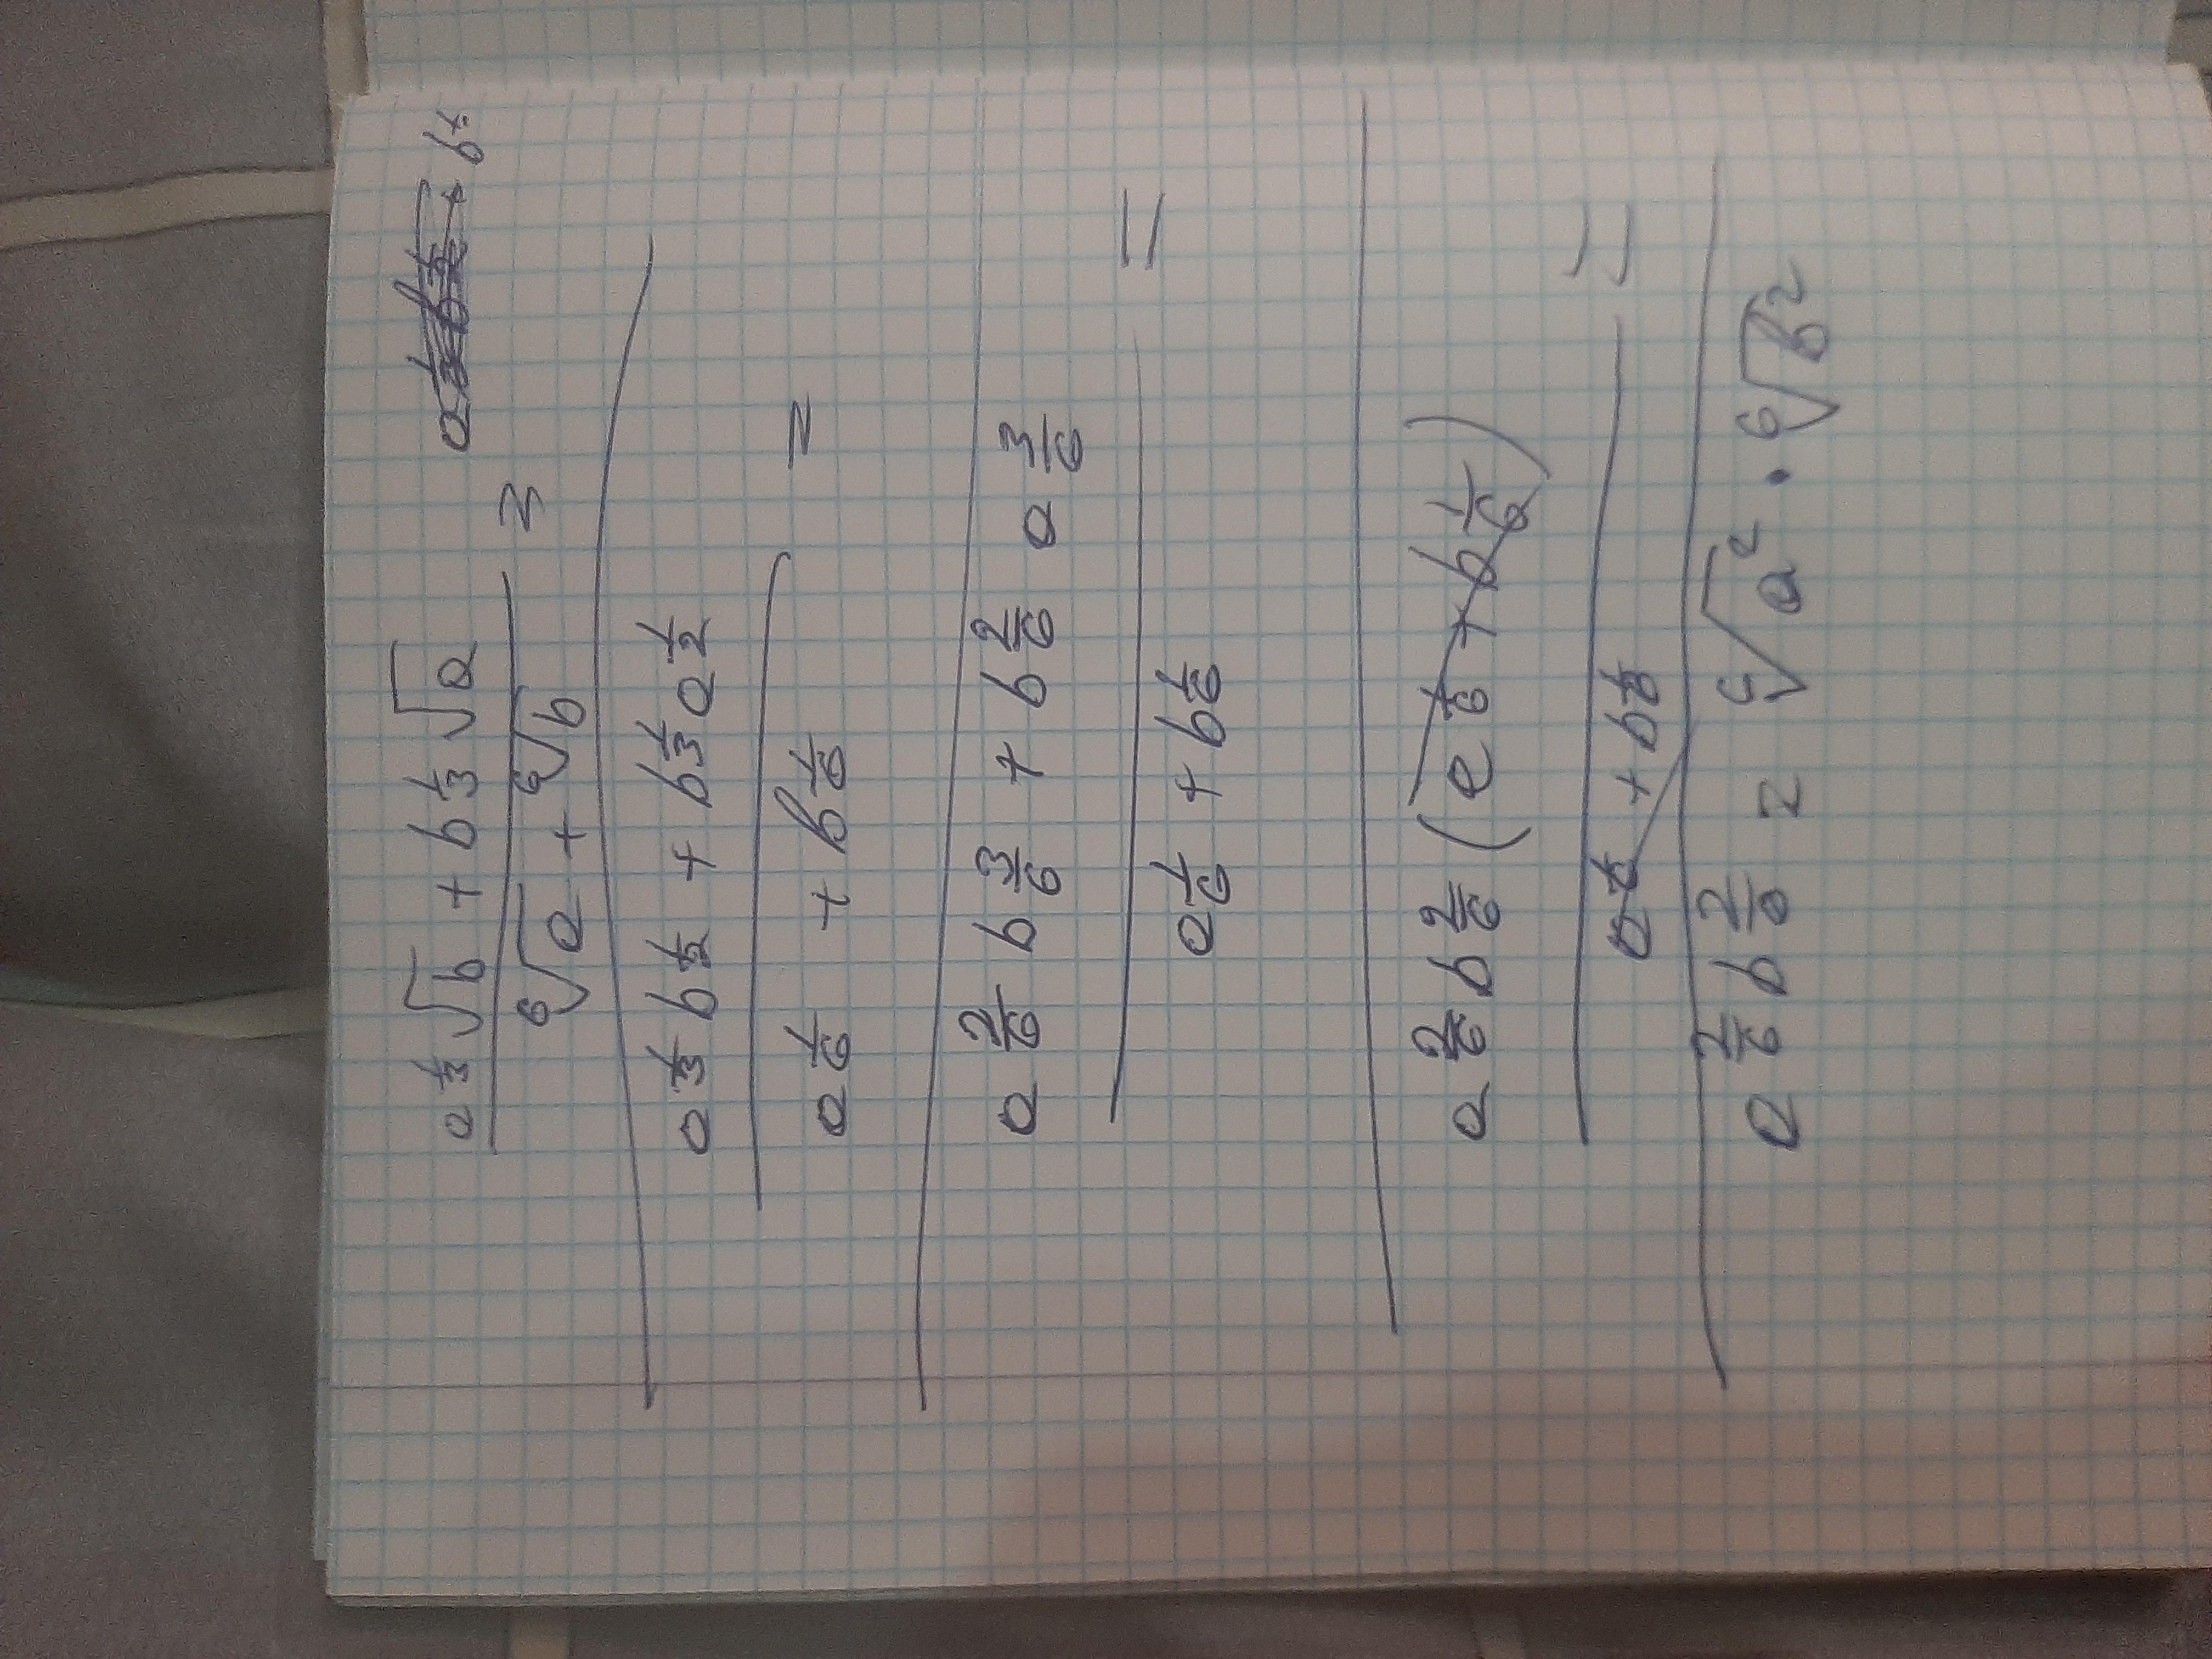 a^{1/3}√b + b^{1/3}√a
=
⁶√a + ⁶√b
a^{1/3} b^{1/2} + b^{1/3} a^{1/2}
=
a^{1/6} + b^{1/6}
a^{2/6} b^{3/6} + b^{2/6} a^{3/6}
=
a^{1/6} + b^{1/6}
a^{2/6} b^{2/6} (a^{1/6} + b^{1/6})
=
a^{1/6} + b^{1/6}
a^{2/6} b^{2/6} = ⁶√a² · ⁶√b²